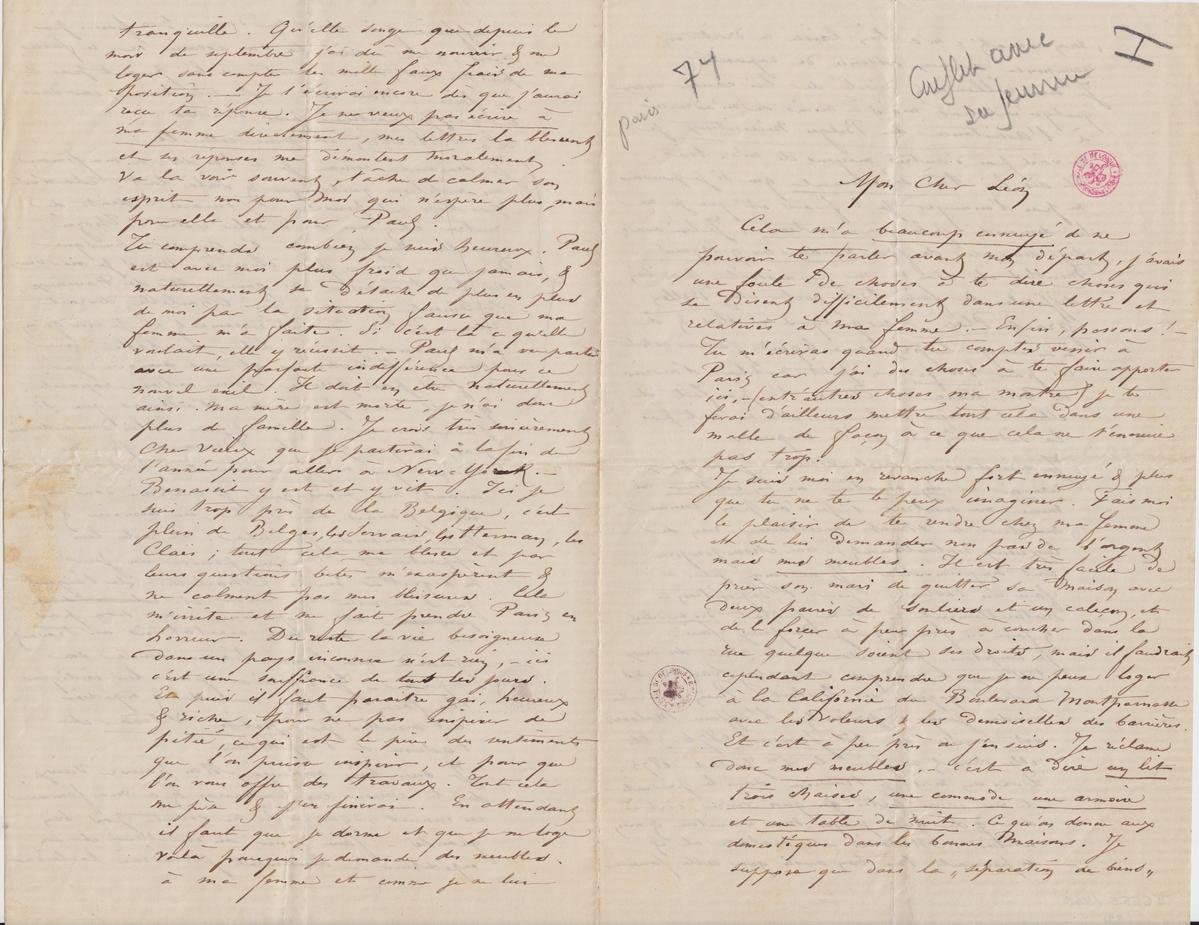 tranquille. Qu'elle songe que depuis le
mois de septembre j'ai dû me nourrir & me
loger sans compter les mille faux frais de ma
position. — Je t'écrirai encore dès que j'aurai
reçu ta réponse. Je ne veux pas écrire à
ma femme directement, mes lettres la blessent
et ses réponses me démontent moralement.
Va la voir souvent, tâche de calmer son
esprit non pour moi qui n'espère plus, mais
pour elle et pour Paul.
Tu comprends combien je suis heureux. Paul
est avec moi plus froid que jamais, &
naturellement se détache de plus en plus
de moi par la situation fausse que ma
femme m'a faite. Si c'est là ce qu'elle
voulait, elle y réussit. — Paul m'a vu partir
avec une parfaite indifférence pour ce
nouvel exil. Il doit en être naturellement
ainsi. Ma mère est morte, je n'ai donc
plus de famille. Je crois très sincèrement
cher vieux que je partirai à la fin de
l'année pour aller à New-York. —
Benassit y est et y vit. Ici je
suis trop près de la Belgique, c'est
plein de Belges, les Servais, les Herman, les
Claes; tout cela me blesse et par
leurs questions bêtes m'exaspèrent &
ne calment pas mes blessures. Cela
m'irrite et me fait prendre Paris en
horreur. Du reste la vie besoigneuse
dans un pays inconnu n'est rien, — ici
c'est une souffrance de tous les jours.
Et puis il faut paraître gai, heureux
& riche, pour ne pas inspirer de
pitié, ce qui est le pire des sentiments
que l'on puisse inspirer, et pour que
l'on vous offre des travaux. Tout cela
me pèse & j'en finirai. En attendant
il faut que je dorme et que je me loge
voilà pourquoi je demande des meubles.
à ma femme et comme je ne lui
paris
74
Conflit avec
sa femme
H
Mon Cher Léon
Cela m'a beaucoup ennuyé de ne
pouvoir te parler avant mon départ, j'avais
une foule de choses à te dire choses qui
se disent difficilement dans une lettre et
relatives à ma femme. — Enfin, passons! —
Tu m'écriras quand tu comptes venir à
Paris car j'ai des choses à te faire apporter
ici, — (entr'autres choses ma montre) je te
ferai d'ailleurs mettre tout cela dans une
malle de façon à ce que cela ne t'ennuie
pas trop.
Je suis moi en revanche fort ennuyé & plus
que tu ne te le peux imaginer. Fais moi
le plaisir de te rendre chez ma femme
et de lui demander non pas de l'argent
mais mes meubles. Il est très facile de
prier son mari de quitter sa maison avec
deux paires de souliers et un caleçon, et
de le forçer à peu près à coucher dans la
rue quelque soient ses droits, mais il faudrait
cependant comprendre que je ne peux loger
à la Californie du Boulevard Montparnasse
avec les voleurs & les demoiselles des barrières.
Et c'est à peu près où j'en suis. Je réclame
donc mes meubles. — c'est à dire un lit
trois chaises, une commode une armoire
et une table de nuit. Ce qu'on donne aux
domestiques dans les bonnes maisons. Je
suppose que dans la „séparation de biens„